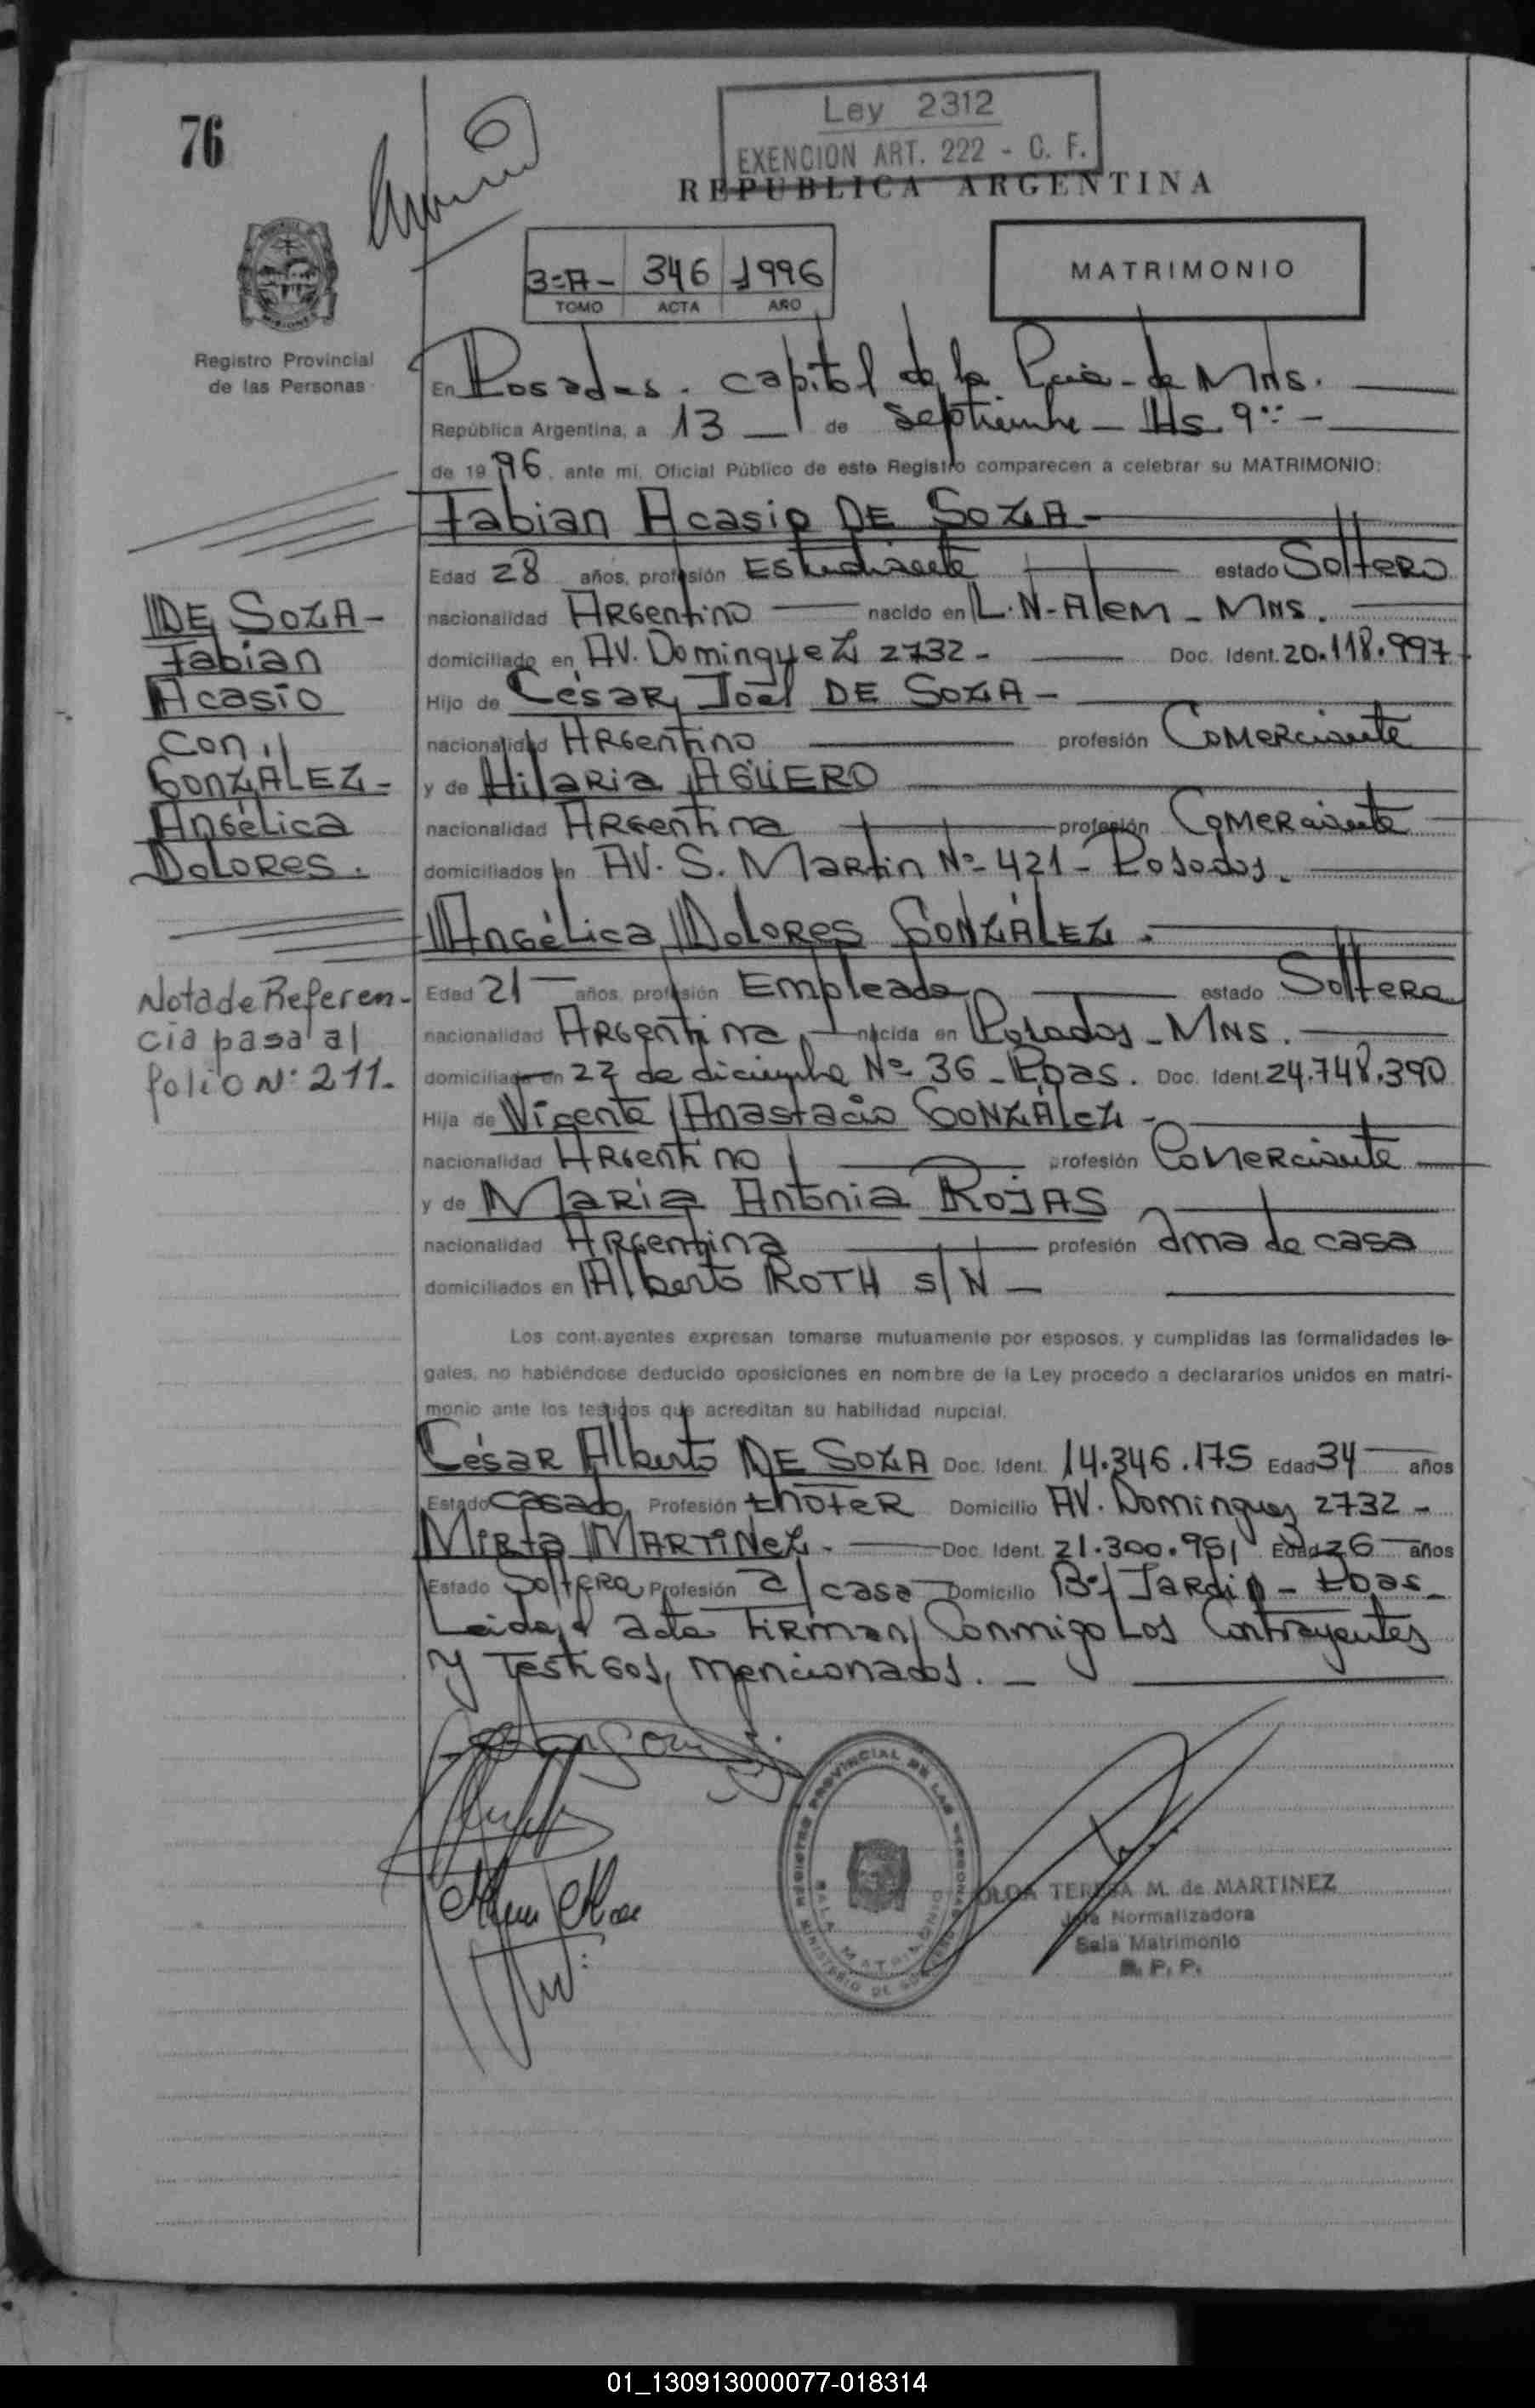 76
Ley 2312
EXENCION ART. 222 - C. F.
REPUBLICA ARGENTINA
3=A- 346 1996
TOMO ACTA AÑO
MATRIMONIO
MISIONES
Registro Provincial
de las Personas
En Posadas. capital de la Pcia- de MNS.
República Argentina, a 13 de Septiembre - Hs. 9:: -
de 1996, ante mi, Oficial Público de este Registro comparecen a celebrar su MATRIMONIO:
Fabian Acasio DE SOZA-
Edad 28 años, profesión Estudiante estado Soltero
nacionalidad Argentino nacido en L.N-Alem - MNS.
domiciliado en AV. Dominguez 2732- Doc. Ident. 20.118.997
Hijo de César Joel DE SOZA-
nacionalidad Argentino profesión Comerciante
y de Hilaria AGÜERO
nacionalidad Argentina profesión Comerciante
domiciliados en AV. S. Martin Nº- 421- Posadas.
DE SOZA-
Fabian
Acasio
Con
GONZALEZ-
Angélica
Dolores.
Angélica Dolores GONZÁLEZ.
Edad 21 años, profesión Empleada estado Soltera
nacionalidad Argentina nacida en Posadas - MNS.
domiciliada en 22 de diciembre Nº- 36 - Pdas. Doc. Ident. 24.748.390
Hija de Vicente Anastacio GONZÁLEZ-
nacionalidad Argentino profesión Comerciante
y de Maria Antonia ROJAS
nacionalidad Argentina profesión ama de casa
domiciliados en Alberto ROTH s/N -
Nota de Referen-
cia pasa al
folio Nº 211.-
Los contrayentes expresan tomarse mutuamente por esposos, y cumplidas las formalidades le-
gales, no habiéndose deducido oposiciones en nombre de la Ley procedo a declararlos unidos en matri-
monio ante los testigos que acreditan su habilidad nupcial.
César Alberto DE SOZA Doc. Ident. 14.346.175 Edad 34 años
Estado Casado Profesión choter Domicilio AV. Dominguez 2732-
Mirta MARTINEZ.- Doc. Ident. 21.300.951 Edad 26 años
Estado Soltera Profesión a/casa Domicilio Bº/ Jardin - Pdas-
Leida el acta Firman Conmigo Los Contrayentes
y Testigos, mencionados. -
REGISTRO PROVINCIAL DE LAS PERSONAS
SALA MATRIMONIO
MINISTERIO DE GOBIERNO
OLGA TERESA M. de MARTINEZ
Jefa Normalizadora
Sala Matrimonio
R. P. P.
01_130913000077-018314